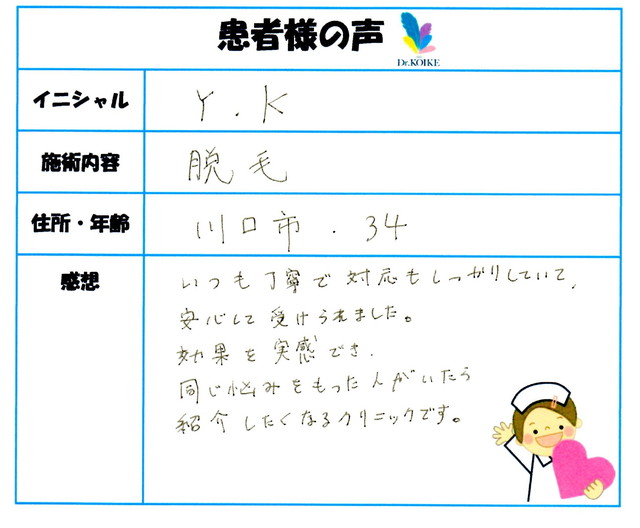 患者様の声
Dr.KOIKE
イニシャル
Y.K
施術内容
脱毛
住所・年齢
川口市.34
感想
いつも丁寧で対応もしっかりしていて、
安心して受けられました。
効果を実感でき、
同じ悩みをもった人がいたら
紹介したくなるクリニックです。